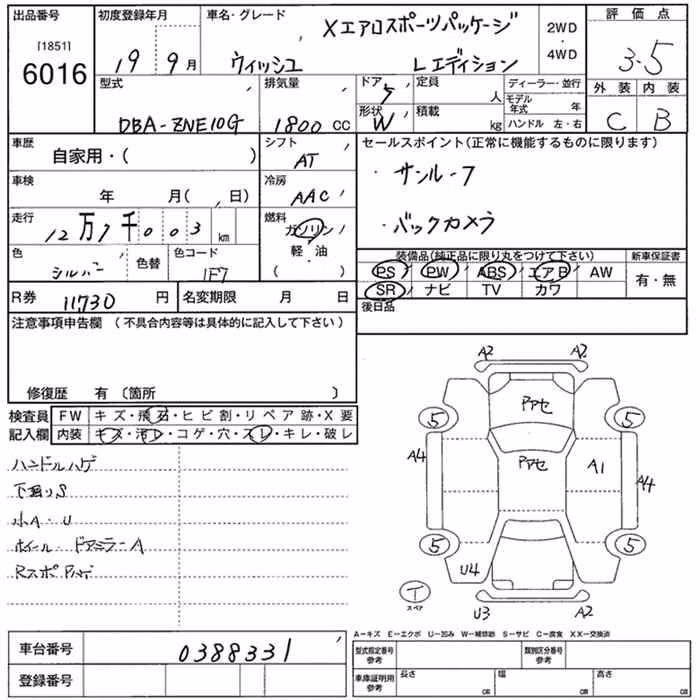 出品番号 初度登録年月 車名・グレード 評価点
[1851]
6016
19 9月 ウィッシュ Xエアロスポーツパッケージ
Lエディション
2WD
4WD
3.5
外装 内装
C B
型式 排気量 ドア 定員 ディーラー・並行
DBA-ZNE10G 1800 CC 5 人 モデル年式 年
形状 積載
W kg ハンドル 左・右
車歴 シフト
自家用・( ) AT
車検 冷房
年 月( 、日) AAC
走行 燃料
12万7千003km ガソリン
軽・油
( )
色 色替 色コード
シルバー 1F7
R券 11730 円 名変期限 月 日
セールスポイント(正常に機能するものに限ります)
・サンルーフ
・バックカメラ
装備品(純正品に限り丸をつけて下さい) 新車保証書
PS PW ABS エアB AW 有・無
SR ナビ TV カワ
後日品
注意事項申告欄(不具合内容等は具体的に記入して下さい)
修復歴 有〔箇所 〕
検査員 FW キズ・飛石・ヒビ割・リペア跡・X要
記入欄 内装 キズ・汚レ・コゲ・穴・スレ・キレ・破レ
ハンドルハゲ
下廻りS
小A・U
ホイール・ドアミラーA
RスポPハゲ
A2 A2
Pアセ
5 5
A4 PアセA1 A4
5 5
U4
T
スペア
U3 A2
A－キズ E－エクボ U－凹み W－補修跡 S－サビ C－腐食 XX－交換済
車台番号 0388331
登録番号
型式指定番号 参考 類別区分番号 参考
車庫証明用 参考 長さ cm 幅 cm 高さ cm